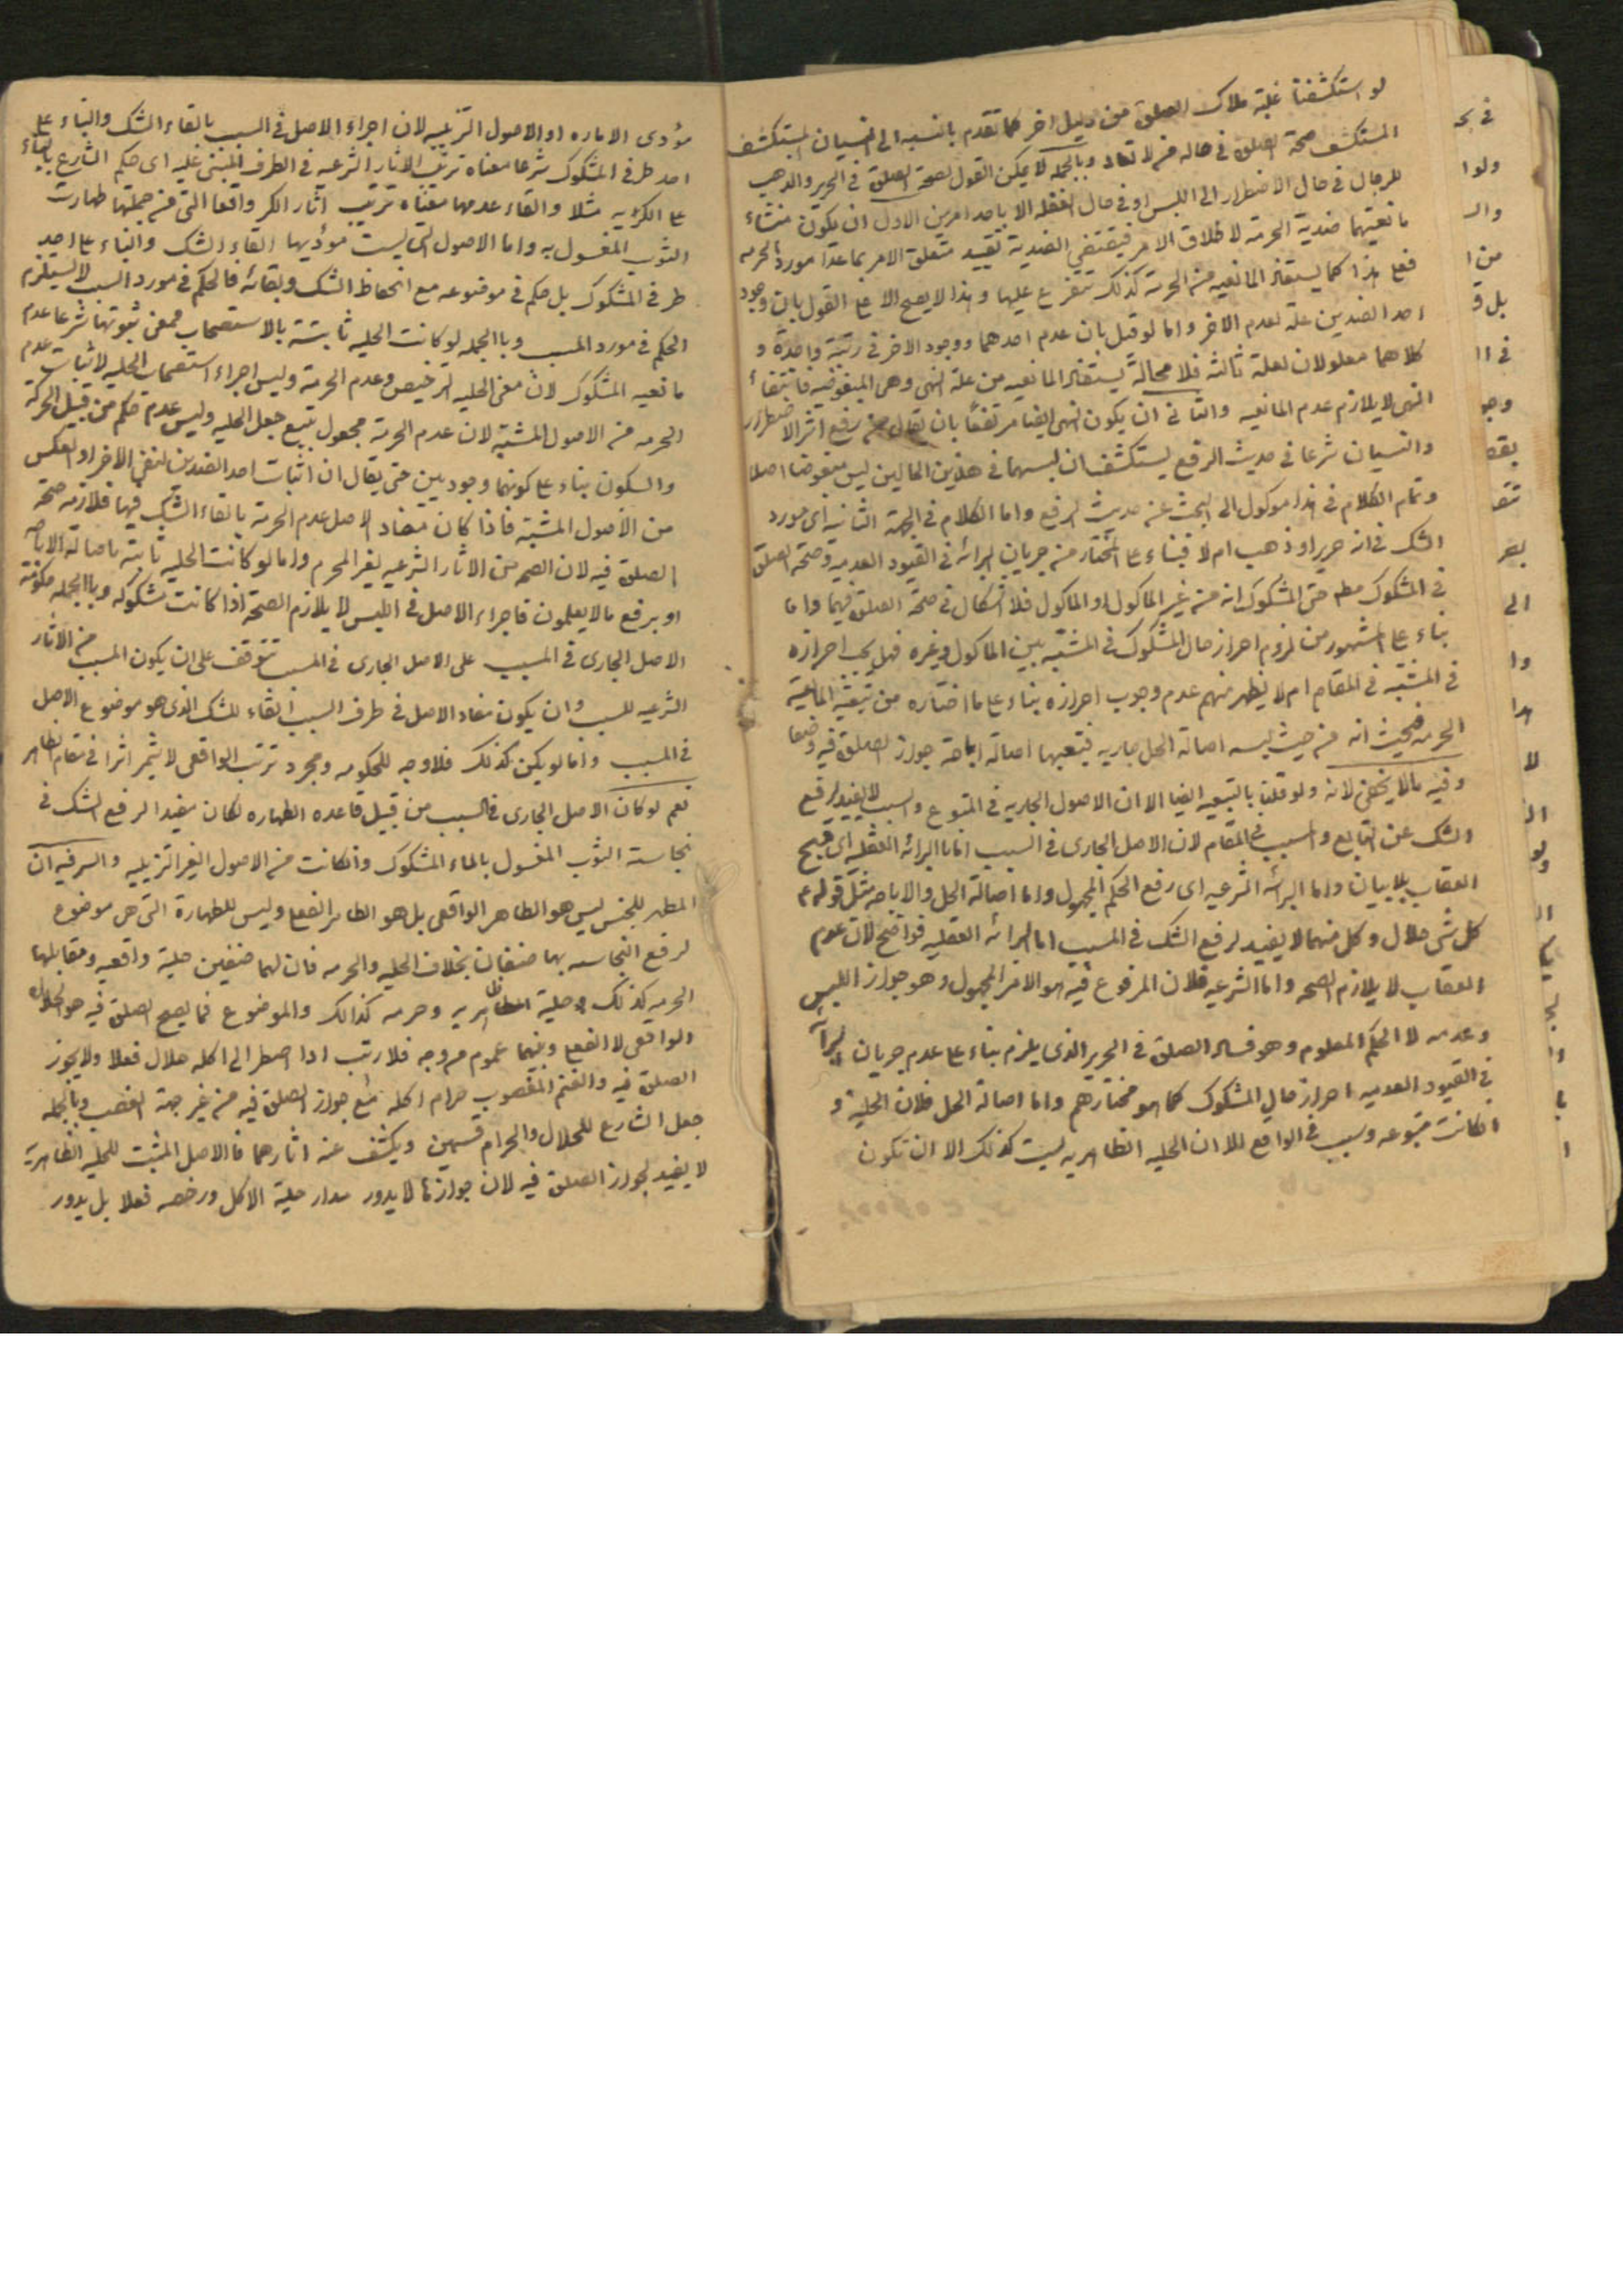 لو استكشفنا غلبة ملاك الصلوة من دليل اخر كما تقدم بالنسبه الى النسيان المستكشف
المستكشف صحة الصلوة في حاله من لا تعاد وبالجمله لا يمكن القول بصحة الصلوة في الحرير والذهب
للرجال في حال الاضطرار الى اللبس او في حال الغفله الا باحد امرين الاول ان يكون منشاء
مانعيتهما ضدية الحرمة لاطلاق الامر فيقتضي الضدية تقييد متعلق الامر بما عدا مورد الحرمه
فعلى هذا كما يستفاد المانعيه من الحرمة كذلك تتفرع عليها وهذا لا يصح الا على القول بان وجود
احد الضدين علة لعدم الاخر واما لو قيل بان عدم احدهما ووجود الاخر في رتبة واحدة و
كلاهما معلولان لعلة ثالثه فلا محالة يستفاد المانعيه من علة النهى وهى المبغوضيه فانتفاء
النهى لا يلازم عدم المانعيه والثانى ان يكون النهى ايضا مرتفعا بان يقال من رفع اثر الاضطرار
والنسيان شرعا في حديث الرفع يستكشف ان لبسهما في هذين الحالين ليس مبغوضا اصلا
وتمام الكلام في هذا موكول الى البحث عن حديث الرفع واما الكلام في الجهة الثانيه اى مورد
الشك في انه حرير او ذهب ام لا فبناء على المختار من جريان البرائه في القيود العدميه وصحة الصلوة
في المشكوك مطلقا حتى المشكوك انه من غير الماكول او الماكول فلا اشكال في صحة الصلوة فيهما واما
بناء على المشهور من لزوم احراز حال المشكوك في المشتبه بين الماكول وغيره فهل يجب احرازه
في المشتبه في المقام ام لا يظهر منهم عدم وجوب احرازه بناء على ما اختاره من تبعية المانعية
الحرمه فحيث انه من حيث لبسه اصالة الحل جاريه فيتبعها اصالة اباحة جواز الصلوة فيه وضعا
وفيه مالا يخفى لانه ولو قلنا بالتبعيه ايضا الا ان الاصول الجاريه في المتبوع والسبب لا يفيد لرفع
الشك عن التابع والمسبب في المقام لان الاصل الجارى في السبب اما البرائه العقليه اى قبح
العقاب بلا بيان واما البرائه الشرعيه اى رفع الحكم المجهول واما اصالة الحل والاباحه مثل قوله ع
كل شئ حلال وكل منهما لا يفيد لرفع الشك في المسبب اما البرائه العقليه فواضح لان عدم
العقاب لا يلازم الصحه واما الشرعيه فلان المرفوع فيه هو الامر المجهول وهو جواز اللبس
وعدمه لا الحكم المعلوم وهو فساد الصلوة في الحرير الذى يلزم بناء على عدم جريان البرائه
في القيود العدميه احراز حال المشكوك كما هو مختارهم واما اصالة الحل فلان الحلية و
انكانت متبوعه وسبب في الواقع الا ان الحليه الظاهريه ليست كذلك الا ان تكون
مؤدى الاماره او الاصول التنزيليه لان اجراء الاصل في السبب بالقاء الشك والبناء على
احد طرفي المشكوك شرعا معناه ترتيب الاثار الشرعيه في الطرف المبنى عليه اى حكم الشارع بالبناء
على الكريه مثلا والقاء عدمها معناه ترتيب آثار الكر واقعا التى من جملتها طهارت
الثوب المغسول به واما الاصول التى ليست مؤديها القاء الشك والبناء على احد
طرفي المشكوك بل حكم في موضوعه مع انحفاظ الشك وبقائه فالحكم في مورد السبب لا يستلزم
الحكم في مورد المسبب وبالجمله لو كانت الحليه ثابتة بالاستصحاب فمعنى ثبوتها شرعا عدم
مانعيه المشكوك لان معنى الحليه الترخيص وعدم الحرمة وليس اجراء استصحاب الحليه لاثبات عدم
الحرمه من الاصول المثبته لان عدم الحرمة مجعول بتبع جعل الحليه وليس عدم حكم من قبيل الحركة
والسكون بناء على كونهما وجوديين حتى يقال ان اثبات احد الضدين لنفى الاخر او العكس
من الاصول المثبته فاذا كان مفاد الاصل عدم الحرمة بالقاء الشك فيها فلازمه صحة
الصلوة فيه لان الصحه من الاثار الشرعيه لغير المحرم واما لو كانت الحليه ثابتة باصالة الاباحه
او برفع ما لا يعلمون فاجراء الاصل في اللبس لا يلازم الصحة اذا كانت مشكوكه وبالجمله حكومة
الاصل الجارى في السبب على الاصل الجارى في المسبب تتوقف على ان يكون المسبب من الآثار
الشرعيه للسبب وان يكون مفاد الاصل في طرف السبب القاء للشك الذى هو موضوع الاصل
في المسبب واما لو يكن كذلك فلا وجه للحكومه ومجرد ترتب الواقعى لا يثمر اثرا في مقام الظاهر
نعم لو كان الاصل الجارى في السبب من قبيل قاعده الطهاره لكان مفيدا لرفع الشك في
نجاسة الثوب المغسول بالماء المشكوك وانكانت من الاصول الغير التنزيليه والسر فيه ان
المطهر للنجس ليس هو الطاهر الواقعى بل هو الطاهر الفعلى وليس للطهارة التى هى موضوع
لرفع النجاسه بها صنفان بخلاف الحليه والحرمه فان لهما صنفين حلية واقعيه ومقابلها
الحرمه كذلك وحلية ظاهريه وحرمه كذالك والموضوع فما يصح الصلوة فيه هو الحلال
الواقعى لا الفعلى وبينهما عموم من وجه فالارنب اذا اضطر الى اكله حلال فعلا ولا يجوز
الصلوة فيه والغنم المغصوب حرام اكله مع جواز الصلوة فيه من غير جهة الغصب وبالجمله
جعل الشارع للحلال والحرام قسمين ويكشف عنه اثارهما فالاصل المثبت للحليه الظاهرية
لا يفيد لجواز الصلوة فيه لان جوازها لا يدور مدار حلية الاكل ورخصه فعلا بل يدور